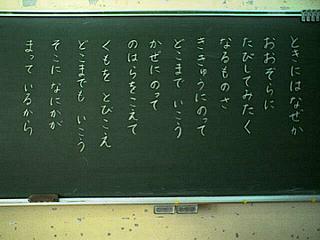 ときにはなぜか
おおぞらに
たびしてみたく
なるものさ
ききゅうにのって
どこまで いこう
かぜにのって
のはらをこえて
くもを とびこえ
どこまでも いこう
そこに なにかが
まって いるから